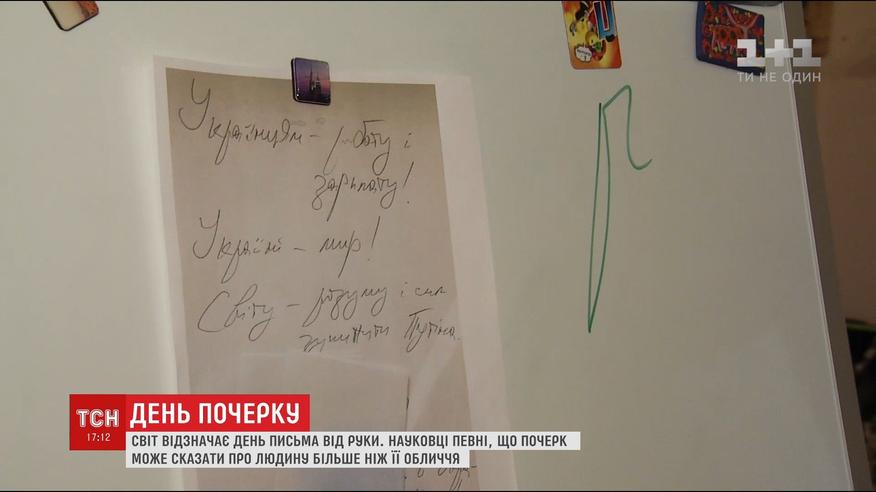 1+1
ТИ НЕ ОДИН
Українцям – роботу і
зарплату!
Україні – мир!
Світу – розуму і сил
зупинити Путіна.
ТСН
17:12
ДЕНЬ ПОЧЕРКУ
СВІТ ВІДЗНАЧАЄ ДЕНЬ ПИСЬМА ВІД РУКИ. НАУКОВЦІ ПЕВНІ, ЩО ПОЧЕРК
МОЖЕ СКАЗАТИ ПРО ЛЮДИНУ БІЛЬШЕ НІЖ ЇЇ ОБЛИЧЧЯ